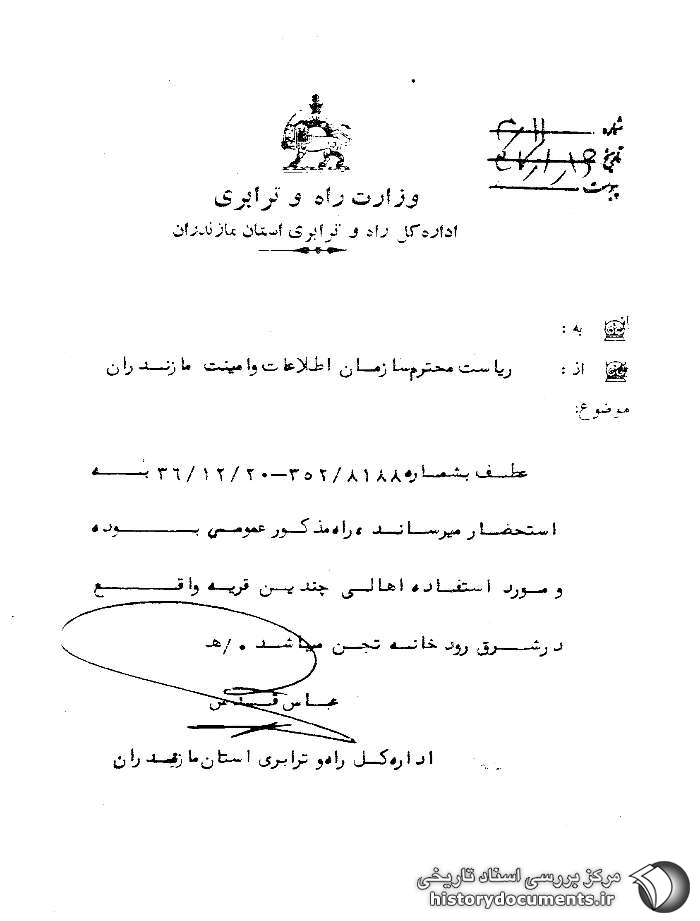 شماره
تاریخ
پیوست
وزارت راه و ترابری
اداره کل راه و ترابری استان مازندران
به :
از : ریاست محترم سازمان اطلاعات وامینت مازندران
موضوع:
عطف بشماره ۳۵۲/۸۱۸۸-۳۶/۱۲/۲۰ به
استحضار میرساند ، راه مذکور عمومی بوده
و مورد استفاده اهالی چندین قریه واقع
در شرق رود خانه تجن میباشد ۰/هـ
عباس قدس
اداره کل راه و ترابری استان مازندران
مرکز بررسی اسناد تاریخی
historydocuments.ir